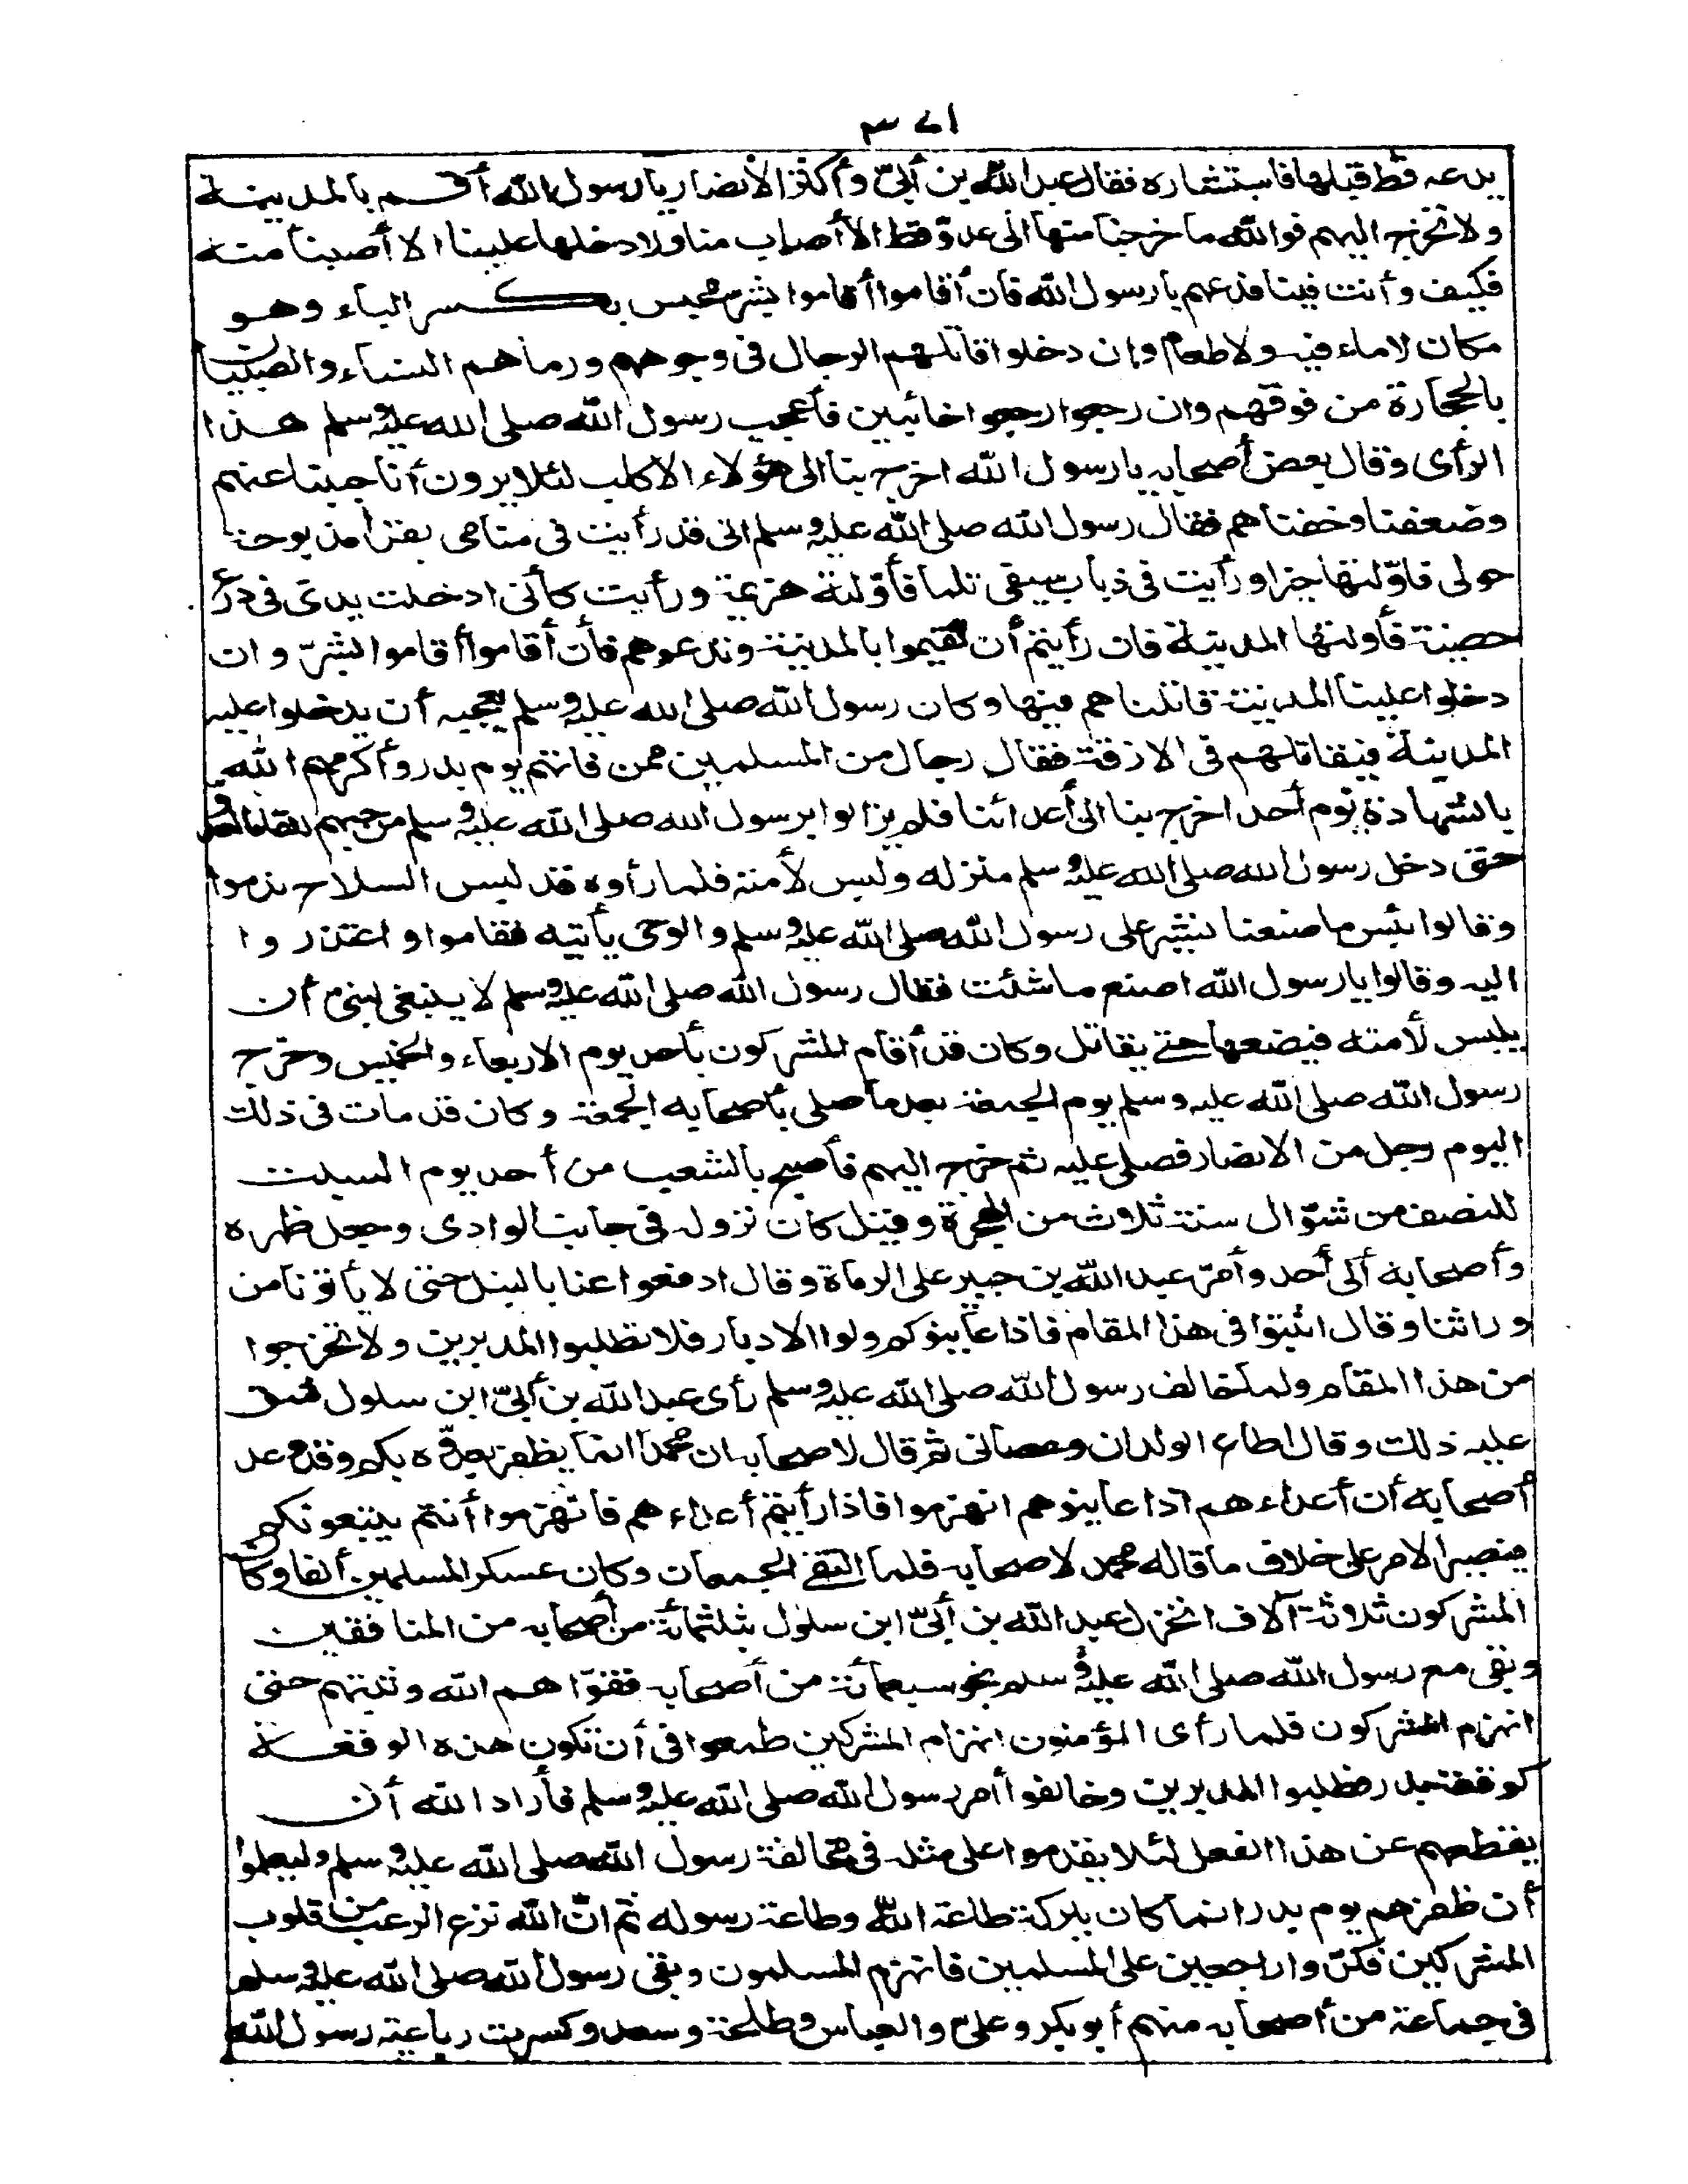 ٣٧١
يدعه قط قبلها فاستشاره فقال عبد الله بن أبيّ وأكثر الأنصار يا رسول الله أقم بالمدينة
ولا تخرج اليهم فوالله ما خرجنا منها الى عدوّ قط الا أصاب منا ولا دخلها علينا الا أصبنا منه
فكيف وأنت فينا فدعهم يا رسول الله فان أقاموا أقاموا بشرّ محبس بكسر الباء وهو
مكان لا ماء فيه ولا طعام وان دخلوا قاتلهم الرجال في وجوههم ورماهم النساء والصبيان
بالحجارة من فوقهم وان رجعوا رجعوا خائبين فأعجب رسول الله صلى الله عليه وسلم هذا
الرأى وقال بعض أصحابه يا رسول الله اخرج بنا الى هؤلاء الاكلب لئلا يرون أنا جبنا عنهم
وضعفنا وخفناهم فقال رسول الله صلى الله عليه وسلم انى قد رأيت في منامى بقرا مذبوحة
حولى فاوّلتها خيرا ورأيت في ذباب سيفى ثلما فأوّلته هزيمة ورأيت كأنى ادخلت يدى في درع
حصينة فأولتها المدينة فان رأيتم أن تقيموا بالمدينة وتدعوهم فان أقاموا أقاموا بشرّ وان
دخلوا علينا المدينة قاتلناهم فيها وكان رسول الله صلى الله عليه وسلم يعجبه أن يدخلوا عليه
المدينة فيقاتلهم في الازقة فقال رجال من المسلمين ممن فاتهم يوم بدر وأكرمهم الله
بالشهادة يوم أحد اخرج بنا الى أعدائنا فلم يزالوا برسول الله صلى الله عليه وسلم من حبهم للقاء العدوّ
حتى دخل رسول الله صلى الله عليه وسلم منزله ولبس لأمته فلما رأوه قد لبس السلاح ندموا
وقالوا بئس ما صنعنا نشير على رسول الله صلى الله عليه وسلم والوحى يأتيه فقاموا واعتذروا
اليه وقالوا يا رسول الله اصنع ما شئت فقال رسول الله صلى الله عليه وسلم لا ينبغى لنبىّ أن
يلبس لأمته فيضعها حتى يقاتل وكان قد أقام المشركون بأحد يوم الاربعاء والخميس وخرج
رسول الله صلى الله عليه وسلم يوم الجمعة بعد ما صلى بأصحابه الجمعة وكان قد مات في ذلك
اليوم رجل من الانصار فصلى عليه ثم خرج اليهم فأصبح بالشعب من أحد يوم السبت
للنصف من شوّال سنة ثلاث من الهجرة وقيل كان نزوله في جانب الوادى وجعل ظهره
وأصحابه الى أحد وأمرّ عبد الله بن جبير على الرماة وقال ادفعوا عنا بالنبل حتى لا يأتونا من
ورائنا وقال اثبتوا في هذا المقام فاذا عاينوكم ولوا الادبار فلا تطلبوا المدبرين ولا تخرجوا
من هذا المقام ولما خالف رسول الله صلى الله عليه وسلم رأى عبد الله بن أبيّ ابن سلول شق
عليه ذلك وقال اطاع الولدان وعصانى ثم قال لاصحابه ان محمدا انما يظفر بعدوّه بكم وقد وعد
أصحابه أن أعداءهم اذا عاينوهم انهزموا فاذا رأيتم أعداءهم فانهزموا أنتم يتبعونكم
فيصير الامر على خلاف ما قاله محمد لاصحابه فلما التقى الجمعان وكان عسكر المسلمين ألفا وكان
المشركون ثلاثة آلاف انخزل عبد الله بن أبيّ ابن سلول بثلثمائة من أصحابه من المنافقين
وبقى مع رسول الله صلى الله عليه وسلم نحو سبعمائة من أصحابه فقوّاهم الله وثبتهم حتى
انهزم المشركون فلما رأى المؤمنون انهزام المشركين طمعوا في أن تكون هذه الوقعة
كوقعة بدر فطلبوا المدبرين وخالفوا أمر رسول الله صلى الله عليه وسلم فأراد الله أن
يقطعهم عن هذا الفعل لئلا يقدموا على مثله في مخالفة رسول الله صلى الله عليه وسلم وليعلموا
أن ظفرهم يوم بدر انما كان ببركة طاعة الله وطاعة رسوله ثم انّ الله نزع الرعب من قلوب
المشركين فكرّوا راجعين على المسلمين فانهزم المسلمون وبقى رسول الله صلى الله عليه وسلم
في جماعة من أصحابه منهم أبو بكر وعلىّ والعباس وطلحة وسعد وكسرت رباعية رسول الله